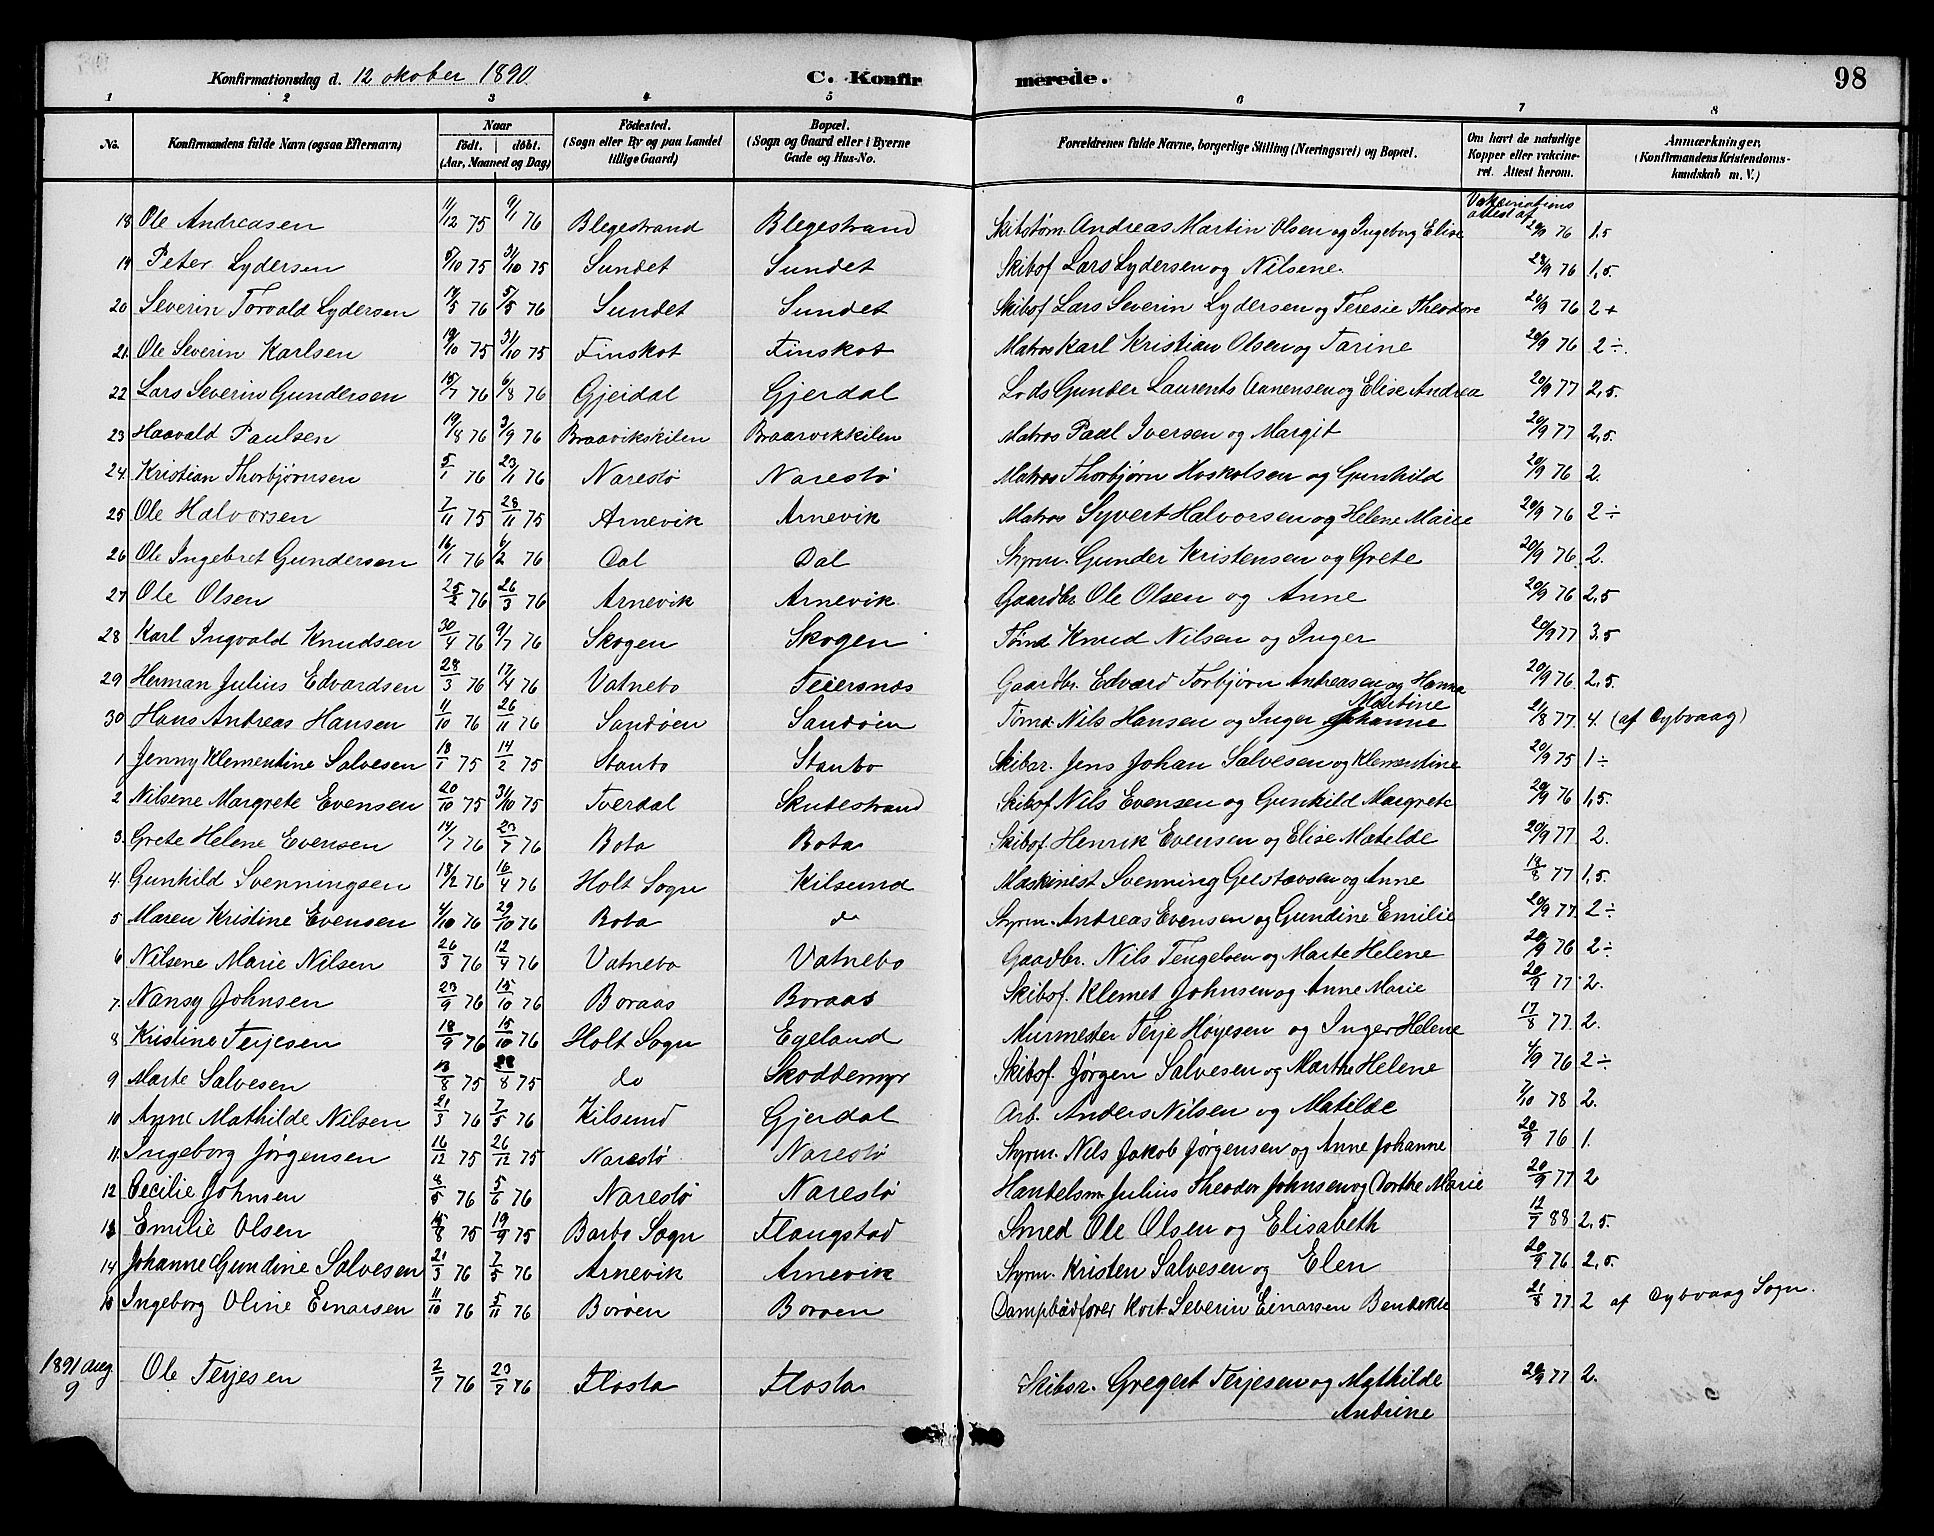 Konfirmationsdag d. 12 oktober 1890. C. Konfirmerede. 98
1 2 3 4 5 6 7 8
No. Konfirmandens fulde Navn (ogsaa Efternavn) Naar födt. döbt. (Aar, Maaned og Dag) Födested. (Sogn eller By og paa Landet tillige Gaard) Bopæl. (Sogn og Gaard eller i Byerne Gade og Hus-No. Forældrenes fulde Navne, borgerlige Stilling (Næringsvei) og Bopæl. Om havt de naturlige Kopper eller vakcineret. Attest herom. Anmærkninger, (Konfirmandens Kristendomskundskab m. V.)
Vakcinations attest af
18 Ole Andreasen 11/12 75 9/1 76 Blegestrand Blegestrand Skibstøm. Andreas Martin Olsen og Ingeborg Elise 20/9 76 1,5
19 Peter Lydersen 5/10 75 31/10 75 Sundet Sundet Skibsf Lars Lydersen og Nilsene. 20/9 76 1,5.
20 Severin Torvald Lydersen 14/3 76 5/5 76 Sundet Sundet Skibsf Lars Severin Lydersen og Teresie Theodore 20/9 76 2+
21 Ole Severin Karlsen 19/10 75 31/10 75 Finskot Finskot Matros Karl Kristian Olsen og Tarine 20/9 76 2÷.
22 Lars Severin Gundersen 15/7 76 6/8 76 Gjerdal Gjerdal Lods Gunder Laurents Aanensen og Elise Andrea 20/9 77 2,5.
23 Haavald Paulsen 19/8 76 3/9 76 Braavikskilen Braarvikkilen Matros Paal Iversen og Margit 20/9 77 2,5.
24. Kristian Thorbjørnsen 5/1 76 23/1 76 Narestø Narestø Matros Thorbjørn Hoskolsen og Gunhild 20/9 76 2.
25 Ole Halvorsen 7/11 75 28/11 75 Arnevik Arnevik Matros Syvert Halvorsen og Helene Marie 20/9 76 2÷
26 Ole Ingebret Gundersen 16/1 76 6/2 76 Dal Dal Styrm. Gunder Kristensen og Grete 20/9 76 2.
27 Ole Olsen 25/2 76 26/3 76 Arnevik Arnevik Gaardbr Ole Olsen og Anne 20/9 76 2,5
28 Karl Ingvald Knudsen 30/4 76 9/7 76 Skogen Skogen Tømd Knud Nilsen og Inger 20/9 77 3,5
29 Herman Julius Edvardsen 28/3 76 17/4 76 Vatnebo Feiersnæs Gaardbr. Edvard Torbjørn Andreasen og Hanna Martine 20/9 76. 2,5.
30 Hans Andreas Hansen 11/10 76 26/11 76 Sandøen Sandøen Tømd. Nils Hansen og Inger Johanne 21/8 77. 4. (af Dybvaag)
1 Jenny Klementine Salvesen 18/1 75 14/2 75 Staubo Staubo Skibsr. Jens Johan Salvesen og Klementine 20/9 75 1÷
2 Nilsene Margrete Evensen 20/10 75 31/10 75 Tverdal Skutestrand Skibsf Nils Evensen og Gunhild Margrete 20/9 76 1,5.
3. Grete Helene Evensen 14/7 76 23/7 76 Bota Bota Skibsf. Henrik Evensen og Elise Matilde 20/9 77. 2.
4. Gunhild Svenningsen 18/2 76 16/4 76 Holt Sogn Kilsund Maskinist Svenning Gustavsen og Anne 18/8 77 1,5.
5 Maren Kristine Evensen 4/10 76 29/10 76 Bota do Styrm. Andreas Evensen og Gundine Emilie 20/9 77. 2÷
6 Nilsene Marie Nilsen 26/3 76 12/4 76 Vatnebo Vatnebo Gaadbr. Nils Tengelsen og Marte Helene 20/9 76 2÷
7. Nansy Johnsen 23/9 76 15/10 76 Boraas Boraas Skibsf. Klemet Johnsen og Anne Marie 20/9 77. 2.
8 Kristine Terjesen 18/9 76 15/10 76 Holt Sogn Egeland Murmester Terje Høyesen og Inger Helene 17/8 77. 2.
9 Marte Salvesen 13/8 75 28/8 75 do Skoddemyr Skibsf. Jørgen Salvesen og Marthe Helene 4/9 76 2÷
10 Anne Mathilde Nilsen 21/3 76 7/5 76 Kilsund Gjerdal Arb. Anders Nilsen og Matilde 7/10 78 2.
11 Ingeborg Jørgensen 16/12 75 26/12 75 Narestø Narestø Styrm. Nils Jakob Jørgensen og Anne Johanne 20/9 76 1.
12 Cecilie Johnsen 8/5 76 5/6 76 Narestø Narestø Handelsm Julius Theodor Johnsen og Dorthe Marie 20/9 77 2
13 Emilie Olsen 15/8 75 19/9 75 Barbo Sogn Flangstad Smed Ole Olsen og Elisabeth 12/7 88 2,5.
14 Johanne Gundine Salvesen 21/3 76 7/5 76 Arnevik Arnevik Styrm. Kristen Salvesen og Elen 20/9 76 2,5.
15 Ingeborg Oline Einarsen 11/10 76 5/11 76 Borøen Borøen Dampbådfører Kort Severin Einarsen Bendekte 21/8 77. 2 af Dybvaag Sogn.
1891 aug 9 Ole Terjesen 2/7 76 23/7 76 Flosta Flosta Skibsr. Gregert Terjesen og Mathilde Andrine 20/9 77 2.